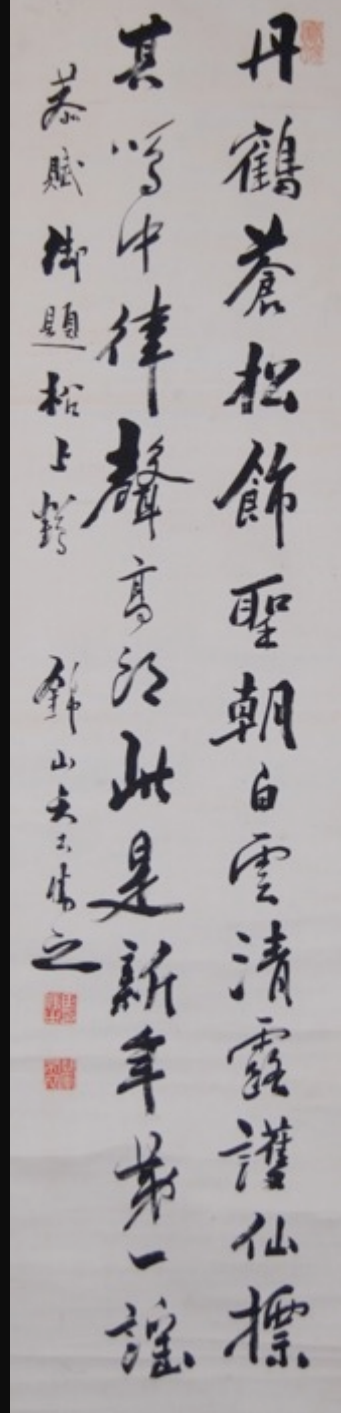 丹鶴蒼松飾聖朝白雲清露護仙標
其鳴中律聲高朗此是新年第一謠
恭賦御題松上鶴 錦山矢土勝之